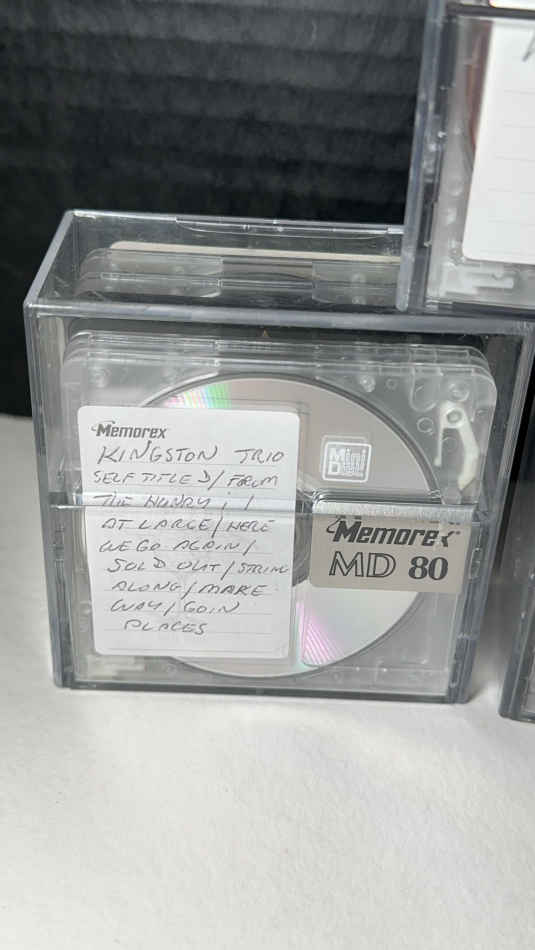 Memorex
KINGSTON TRIO
SELF TITLED/ FROM
THE HUNGRY i /
AT LARGE/HERE
WE GO AGAIN/
SOLD OUT/STRING
ALONG/MAKE
WAY/GOIN
PLACES
Mini
Disc
Memorex
MD 80